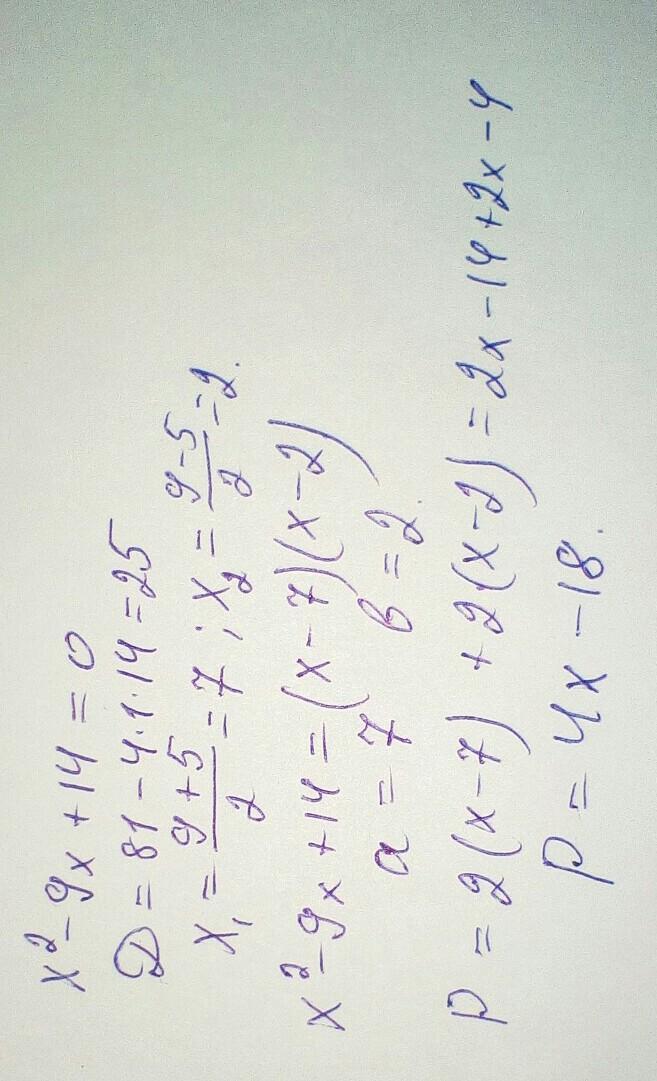 x² - 9x + 14 = 0
D = 81 - 4·1·14 = 25
x₁ = (9+5)/2 = 7; x₂ = (9-5)/2 = 2.
x² - 9x + 14 = (x - 7)(x - 2)
a = 7 в = 2.
P = 2(x - 7) + 2(x - 2) = 2x - 14 + 2x - 4
P = 4x - 18.